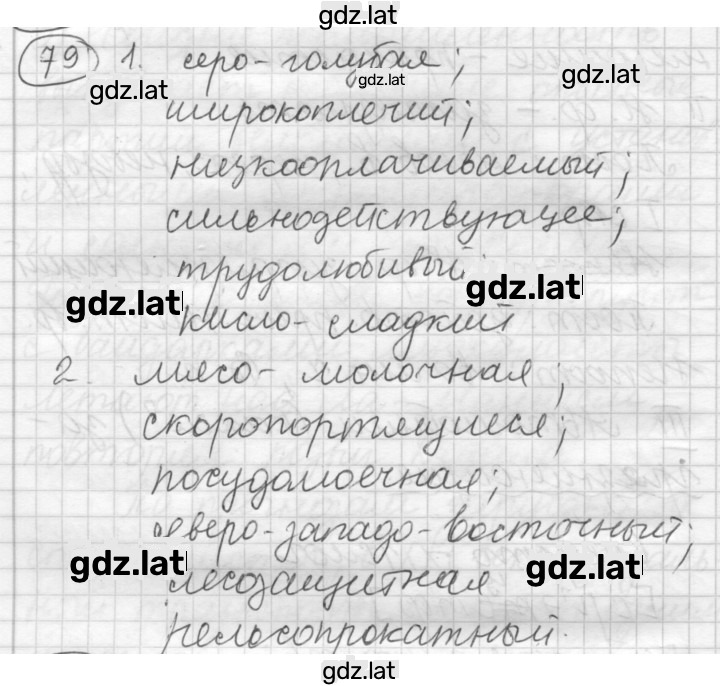 gdz.lat
79 1. серо-голубая;
gdz.lat
gdz.lat gdz.lat
широкоплечий;
низкооплачиваемый;
сильнодействующее;
трудолюбивый;
gdz.lat gdz.lat
кисло-сладкий
2. мясо-молочная;
скоропортящиеся;
посудомоечная;
северо-западо-восточный;
gdz.lat gdz.lat
лесозащитная
рельсопрокатный.
gdz.lat